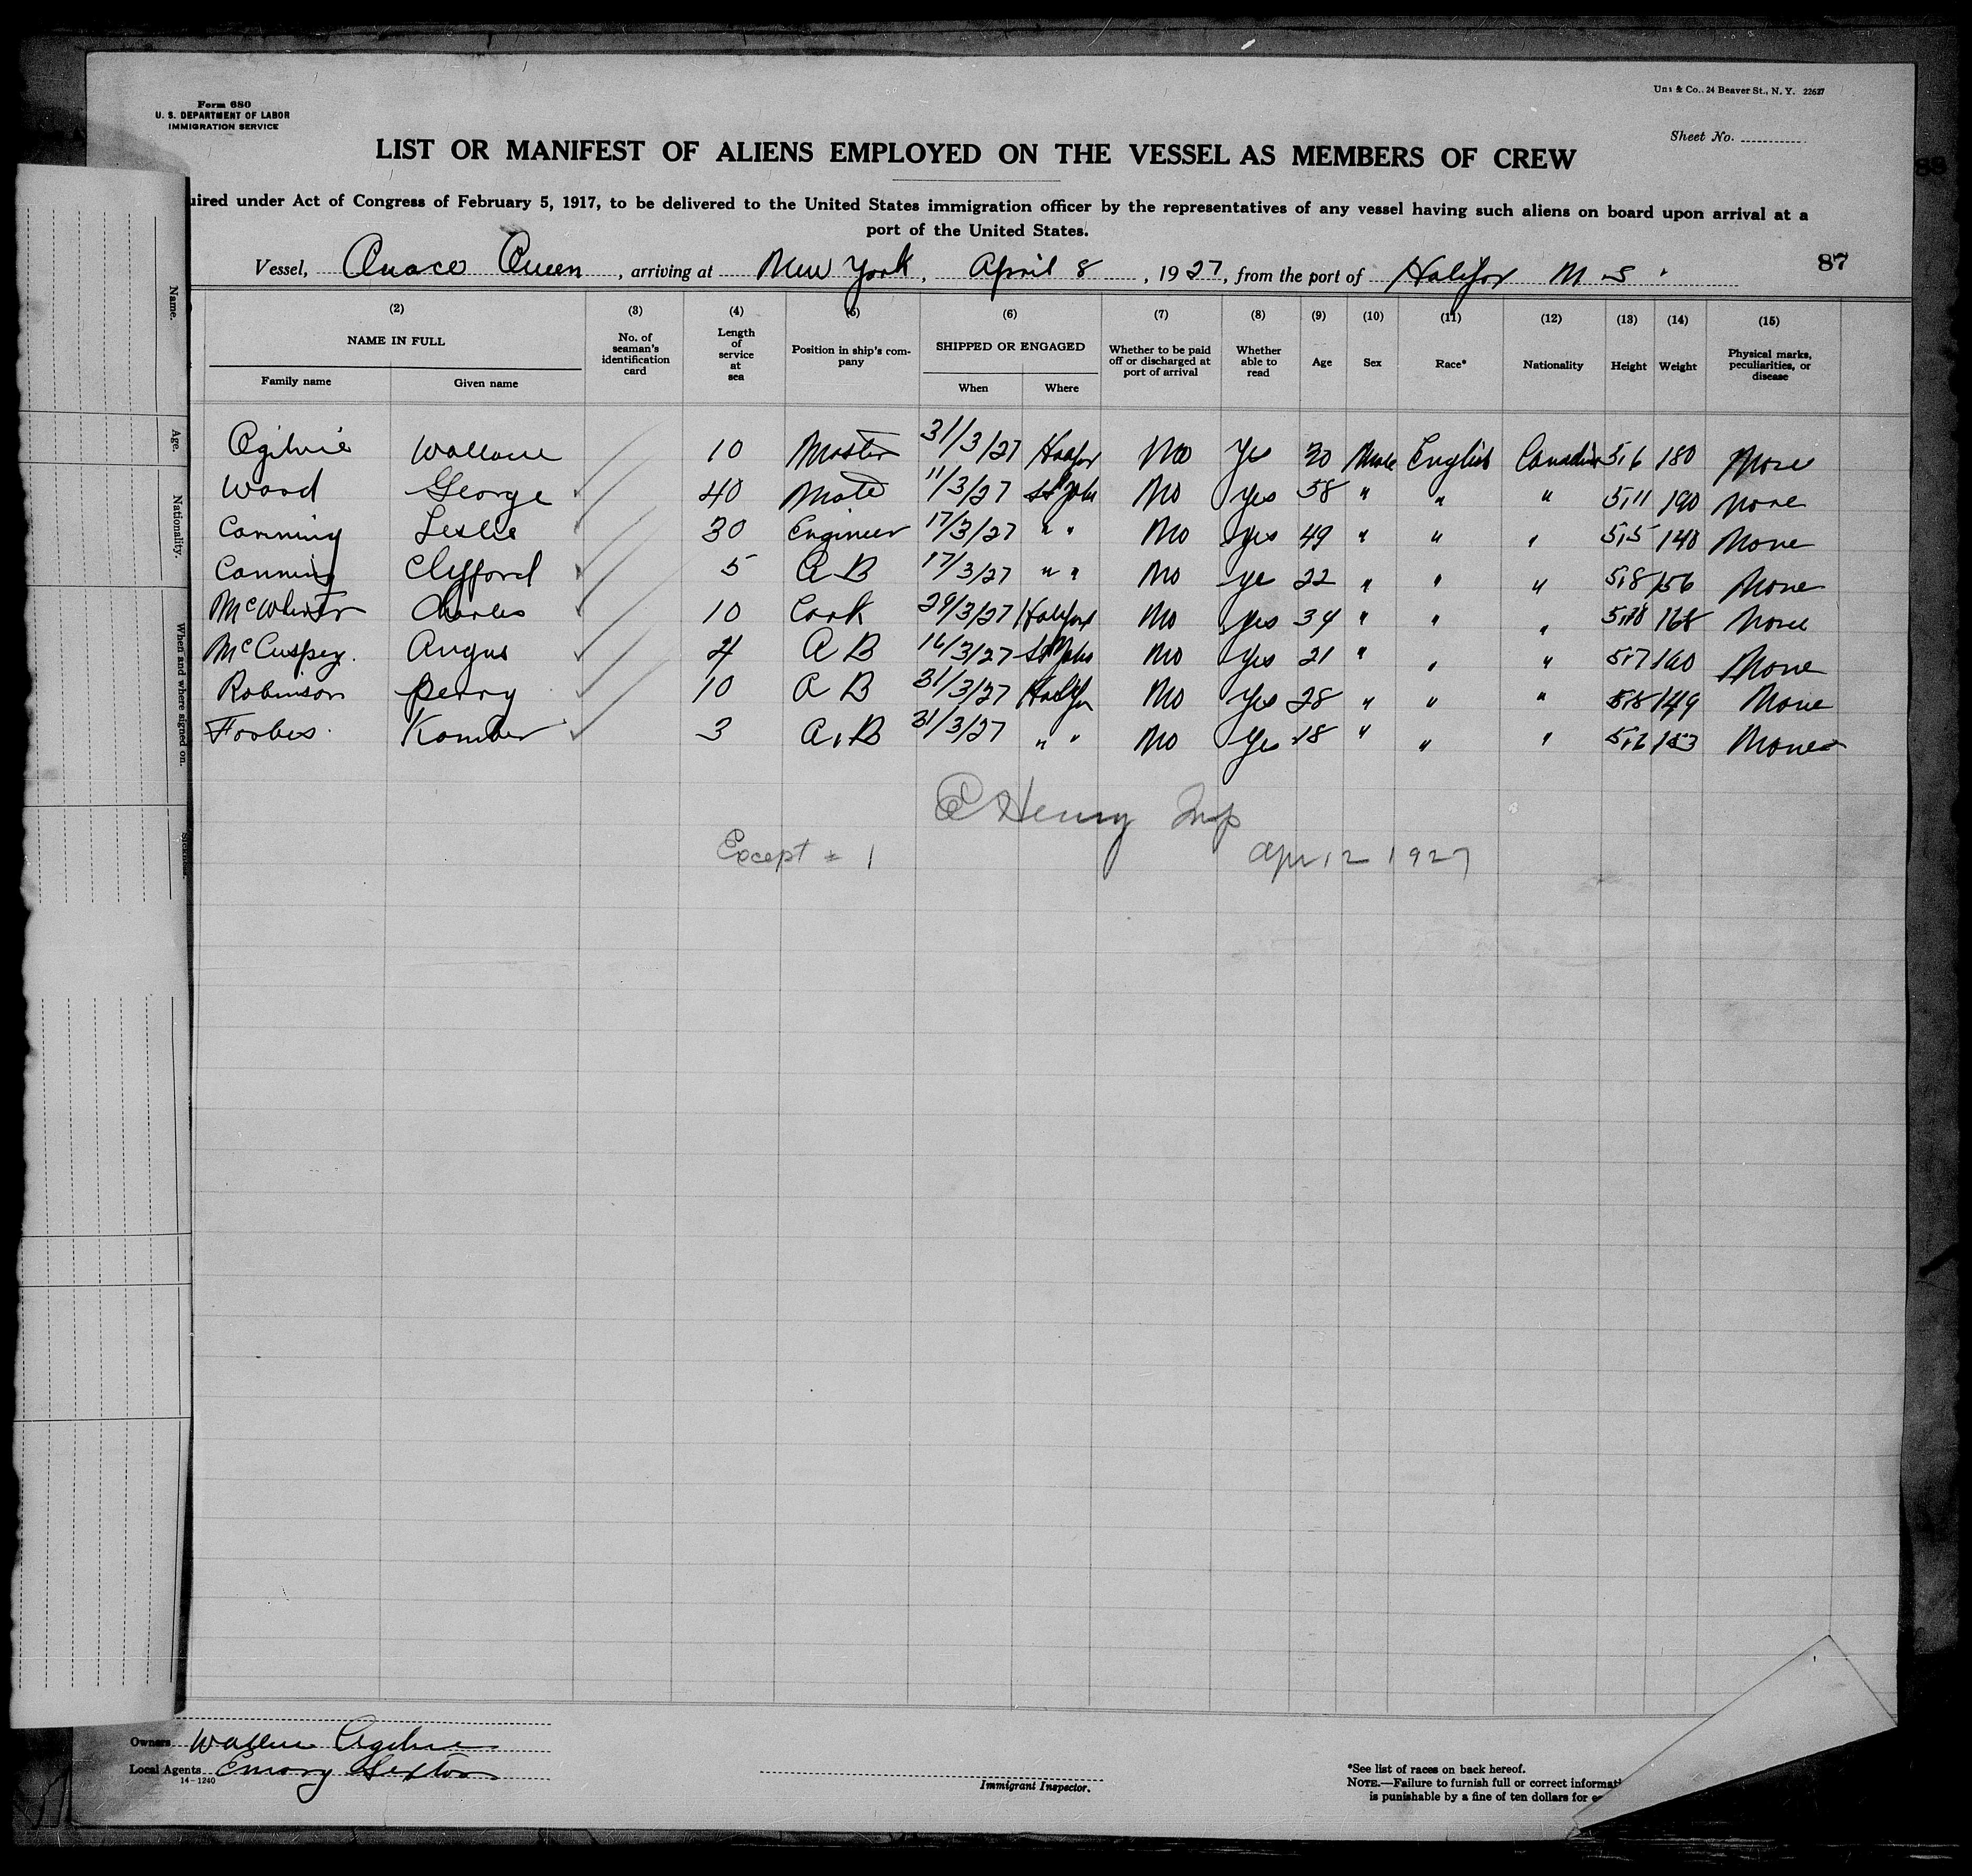 Form 680
U. S. DEPARTMENT OF LABOR
IMMIGRATION SERVICE
& Co., 24 Beaver St., N. Y. 22627
Sheet No.
LIST OR MANIFEST OF ALIENS EMPLOYED ON THE VESSEL AS MEMBERS OF CREW
88
uired under Act of Congress of February 5, 1917, to be delivered to the United States immigration officer by the representatives of any vessel having such aliens on board upon arrival at a
port of the United States.
Vessel, Queen, arriving at New York, April 8, 1927, from the port of Halifax N S.
87
(2) NAME IN FULL Family name Given name
(3) No. of seaman's identification card
(4) Length of service at sea
(5) Position in ship's company
(6) SHIPPED OR ENGAGED When Where
(7) Whether to be paid off or discharged at port of arrival
(8) Whether able to read
(9) Age
(10) Sex
(11) Race*
(12) Nationality
(13) Height
(14) Weight
(15) Physical marks, peculiarities, or disease
Name.
Age.
Nationality.
When and where signed on.
Ogilvie Wallace 10 Master 31/3/27 Halifax No Yes 30 Male English Canadian 5,6 180 None
Ward George 40 Mate 11/3/27 St John No Yes 58 " " " 5,11 190 None
Canning Leslie 30 Engineer 17/3/27 " " No Yes 49 " " " 5,5 148 None
Canning Clyfford 5 A B 17/3/27 " " No Ye 22 " " " 5,8 156 None
Charles 10 Cook 29/3/27 Halifax No Yes 34 " " " 168 None
McCuspey. Angus 4 A B 16/3/27 St John No Yes 21 " " " 5,7 160 None
Robinson Perry 10 A B 31/3/27 Halifax No Yes 28 " " " 149 None
Forbes. 3 A,B 31/3/27 " " No Yes 18 " " " None
Henry Insp
Except # 1 Apr 12 1927
Owners Wallace Ogilvie
Local Agents Emory Sexton
14-1240
Immigrant Inspector.
*See list of races on back hereof.
NOTE.—Failure to furnish full or correct informati
is punishable by a fine of ten dollars for